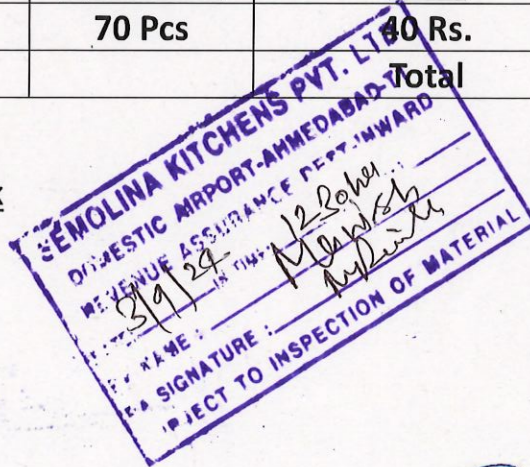 70 Pcs 40 Rs.
Total
SEMOLINA KITCHENS PVT. LTD
DOMESTIC AIRPORT-AHMEDABAD-T
REVENUE ASSURANCE DEPT-INWARD
3/9/24 IN TIME
NAME : Manish
SIGNATURE :
SUBJECT TO INSPECTION OF MATERIAL